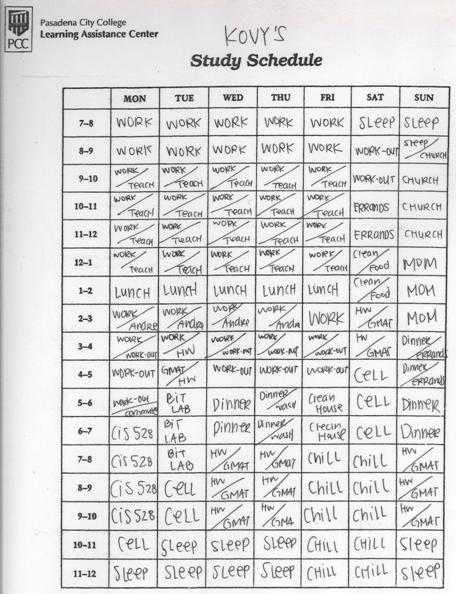 PCC
Pasadena City College
Learning Assistance Center
KOVY'S
Study Schedule
MON TUE WED THU FRI SAT SUN
7–8 WORK WORK WORK WORK WORK SLEEP SLEEP
8–9 WORK WORK WORK WORK WORK WORK-OUT SLEEP/CHURCH
9–10 WORK/TEACH WORK/TEACH WORK/TEACH WORK/TEACH WORK/TEACH WORK-OUT CHURCH
10–11 WORK/TEACH WORK/TEACH WORK/TEACH WORK/TEACH WORK/TEACH ERRANDS CHURCH
11–12 WORK/TEACH WORK/TEACH WORK/TEACH WORK/TEACH WORK/TEACH ERRANDS CHURCH
12–1 WORK/TEACH WORK/TEACH WORK/TEACH WORK/TEACH WORK/TEACH Clean/Food MOM
1–2 LUNCH LUNCH LUNCH LUNCH LUNCH Clean/Food MOM
2–3 WORK/Andre WORK/Andre WORK/Andre WORK/Andre WORK HW/GMAT MOM
3–4 WORK/WORK-OUT WORK/HW WORK/WORK-OUT WORK/WORK-OUT WORK/WORK-OUT HW/GMAT Dinner/Errands
4–5 WORK-OUT GMAT/HW WORK-OUT WORK-OUT WORK-OUT CELL Dinner/Errands
5–6 WORK-OUT/commute BiT LAB Dinner Dinner/wash Clean House CELL Dinner
6–7 CiS 528 BiT LAB Dinner Dinner/wash Clean House CELL Dinner
7–8 CiS 528 BiT LAB HW/GMAT HW/GMAT CHILL CHILL HW/GMAT
8–9 CiS 528 CELL HW/GMAT HW/GMAT CHILL CHILL HW/GMAT
9–10 CiS 528 CELL HW/GMAT HW/GMA CHILL CHILL HW/GMAT
10–11 CELL SLEEP SLEEP SLEEP CHILL CHILL SLEEP
11–12 SLEEP SLEEP SLEEP SLEEP CHILL CHILL SLEEP